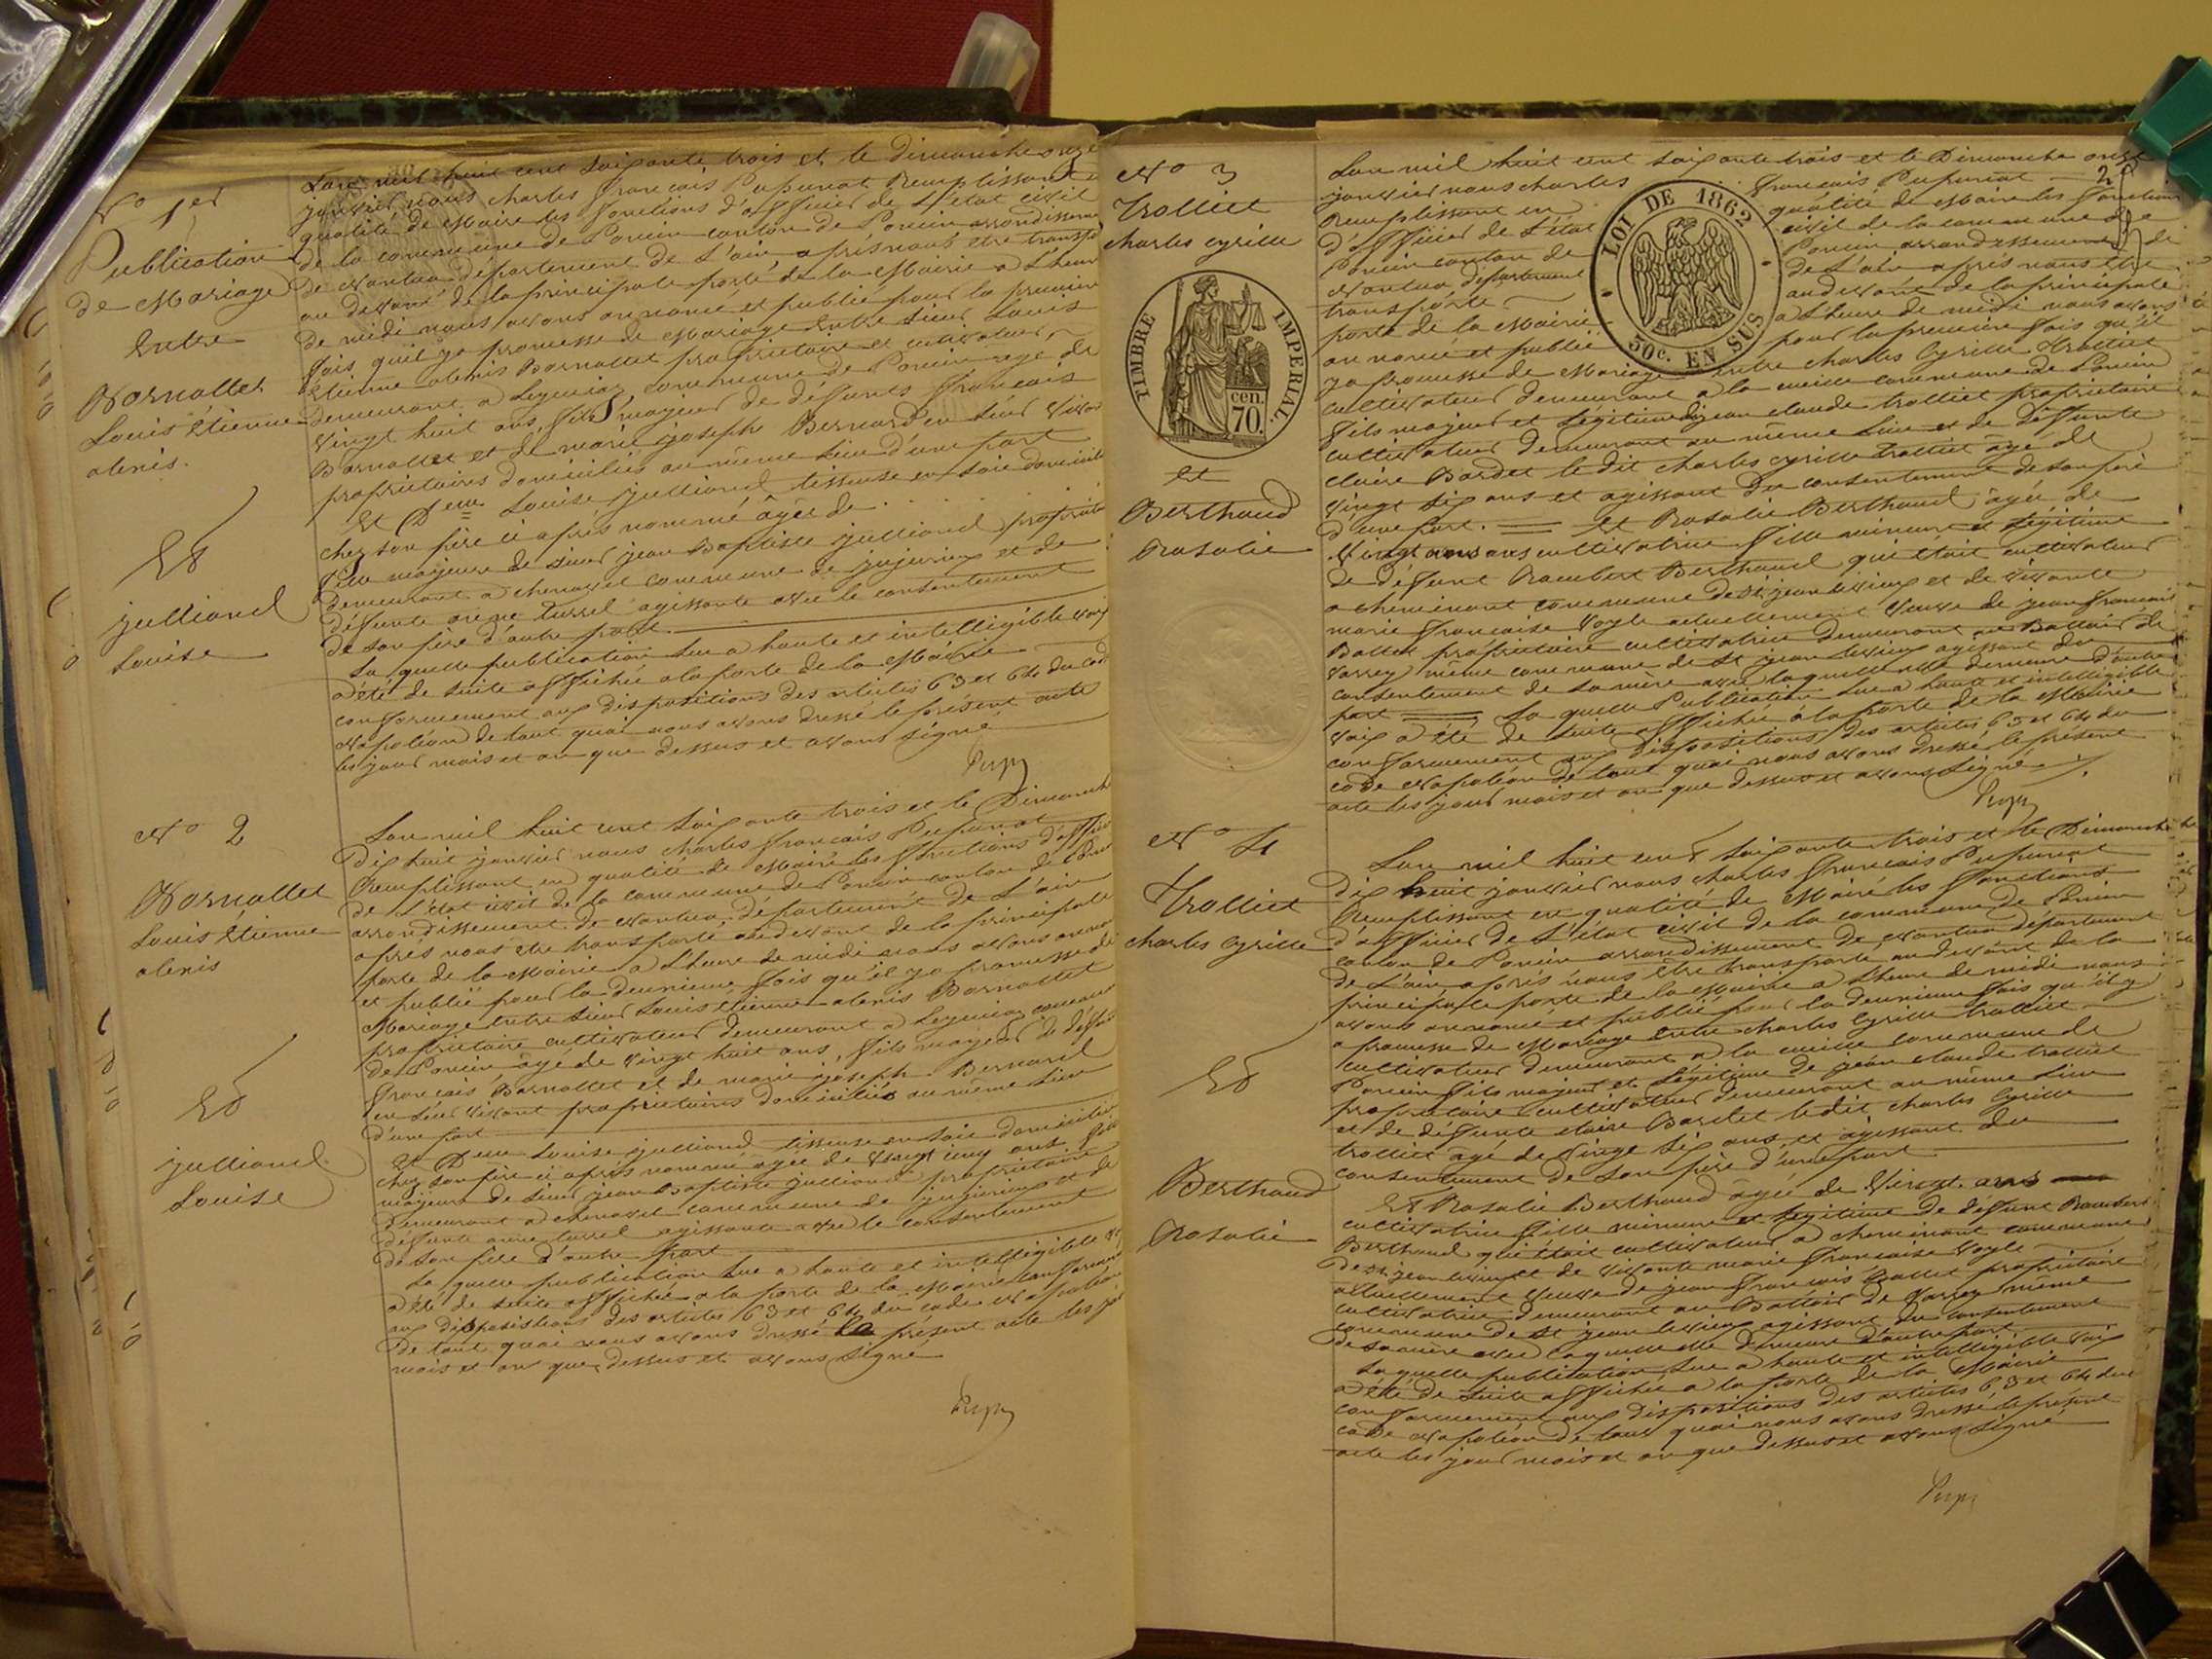 N° 1er
Publication
de Mariage
Entre
Bornattet
Louis Etienne
alexis.
Et
julliand
Louise
Lan mil huit cent soixante trois et le dimanche onze
janvier nous charles francais Pupunat Remplissant en
qualité de Maire les fonctions d'officier de L'état civil
de la commune de Poncin canton de Poncin arrondissement
de Nantua département de L'ain, après nous etre transporté
au devant de la principale porte de la Mairie a Lheure
de midi nous avons annoncé et publié pour la premiere
fois quil ya promesse de Mariage Entre Sieur Louis
Etienne alexis Bornattet proprietaire et cultivateur
Demeurant a Leymiaz commune de Poncin agé de
vingt huit ans, fils majeur de défunts francais
Bornattet et de marie joseph Bernard en leur vivant
proprietaires domiciliés au même Lieu d'une part
Et Delle Louise julliand tisseuse en soie domiciliée
chez son père ci après nommé âgée de
fille majeure de sieur jean Baptiste julliand proprietaire
Demeurant a chenavel commune de jujurieux et de
défunte anne turrel agissante avec le consentement
de son père d'autre part.
La quelle publication Lue a haute et intelligible voix
a été de suite affichée a la porte de la Mairie
conformement aux dispositions des articles 63 et 64 du code
Napoléon de tout quoi nous avons dressé le présent acte
les jour mois et an que dessus et avons signé
N° 2
Bornattet
Louis Etienne
alexis
Et
julliand
Louise
Lan mil huit cent soixante trois et le Dimanche
dix huit janvier nous charles francais Pupunat
Remplissant en qualité de Maire les fonctions d'officier
de L'état civil de la commune de Poncin canton de Poncin
arrondissement de Nantua, département de L'ain
après nous etre transporté au devant de la principale
porte de la Mairie a Lheure de midi nous avons annoncé
et publié pour la deuxieme fois qu'il ya promesse de
Mariage Entre Sieur Louis Etienne alexis Bornattet
proprietaire cultivateur demeurant a Leymiaz commune
de Poncin âgé de vingt huit ans, fils majeur de défunts
francais Bornattet et de marie joseph Bernard
en leur vivant proprietaires domiciliés au même Lieu
d'une part
Et Delle Louise julliand tisseuse en soie domiciliée
chez son père ci après nommé agée de vingt cinq ans fille
majeure de sieur jean Baptiste julliand proprietaire
demeurant a chenavel commune de jujurieux et de
défunte anne turrel agissante avec le consentement
de son père d'autre part
La quelle publication Lue a haute et intelligible voix
a été de suite affichée a la porte de la Mairie conformement
aux dispositions des articles 63 et 64 du code Napoléon
de tout quoi nous avons dressé le présent acte les jour
mois et an que dessus et avons signé
N° 3
Trolliet
charles cyrille
TIMBRE IMPERIAL
cen.
70.
et
Berthaud
Rosalie
LOI DE 1862
50c. EN SUS
2
Lan mil huit cent soixante trois et le Dimanche onze
janvier nous charles francais Pupunat
Remplissant en qualité de Maire les fonctions
d'officier de L'état civil de la commune de
Poncin canton de Poncin arrondissement de
Nantua, département de L'ain après nous etre
transporté au devant de la principale
porte de la Mairie a Lheure de midi nous avons
annoncé et publié pour la premiere fois qu'il
ya promesse de Mariage Entre charles Cyrille trolliet
cultivateur demeurant a la cueille commune de Poncin
fils majeur et Légitime de jean claude trolliet proprietaire
cultivateur demeurant au même Lieu et de défunte
claire Bardet le dit charles cyrille trolliet âgé de
vingt six ans et agissant du consentement de son père
d'une part. Et Rosalie Berthaud agée de
vingt ans cultivatrice fille mineure et Légitime
de défunt Rambert Berthaud qui était cultivateur
a cheminant commune de St jean levieux et de vivante
marie francaise Vogle actuellement Veuve de jean francais
Battet proprietaire cultivatrice demeurant au Battoir de
Varrey même commune de St jean levieux agissant du
consentement de sa mère avec laquelle elle demeure d'autre
part La quelle Publication Lue a haute et intelligible
voix a été de suite affichée à la porte de la Mairie
conformement aux dispositions des articles 63 et 64 du
code Napoléon de tout quoi nous avons dressé le présent
acte les jour mois et an que dessus et avons signé.
N° 4
Trolliet
charles Cyrille
Et
Berthaud
Rosalie
Lan mil huit cent soixante trois et le Dimanche
dix huit janvier nous charles francais Pupunat
Remplissant en qualité de Maire les fonctions
d'officier de L'état civil de la commune de Poncin
canton de Poncin arrondissement de Nantua département
de L'ain, après nous être transporté au devant de la
principale porte de la Mairie a Lheure de midi nous
avons annoncé et publié pour la deuxieme fois qu'il y
a promesse de Mariage Entre charles Cyrille trolliet
cultivateur demeurant a la cueille commune de
Poncin fils majeur et Légitime de jean claude trolliet
proprietaire cultivateur demeurant au même Lieu
et de défunte claire Bardet le dit charles Cyrille
trolliet agé de vingt six ans et agissant du
consentement de son père d'une part
Et Rosalie Berthaud agée de Vingt ans
cultivatrice fille mineure et Légitime de défunt Rambert
Berthaud qui était cultivateur a cheminant commune
de St jean levieux et de vivante marie francaise Vogle
actuellement Veuve de jean francais Battet proprietaire
cultivatrice demeurant au Battoir de Varrey même
commune de St jean levieux agissant du consentement
de sa mère avec laquelle elle demeure d'autre part
La quelle publication Lue a haute et intelligible voix
a été de suite affichée a la porte de la Mairie
conformement aux dispositions des articles 63 et 64 du
code Napoléon de tout quoi nous avons dressé le présent
acte les jour mois et an que dessus et avons signé